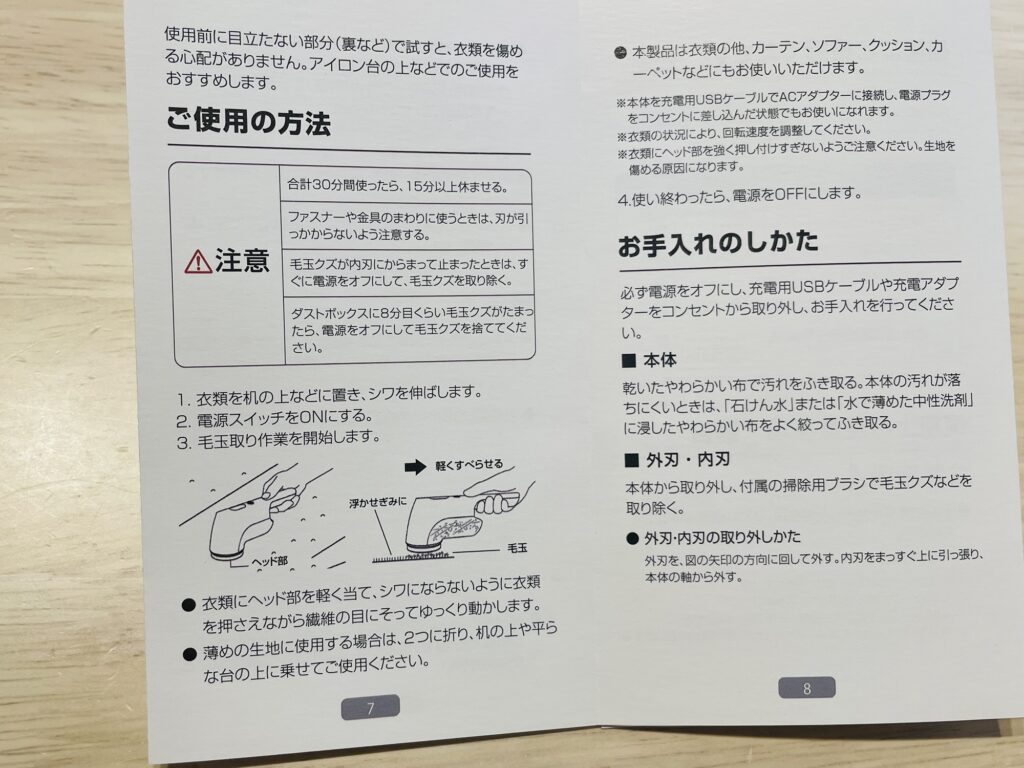 使用前に目立たない部分(裏など)で試すと、衣類を傷め
る心配がありません。アイロン台の上などでのご使用を
おすすめします。
ご使用の方法
⚠注意
合計30分間使ったら、15分以上休ませる。
ファスナーや金具のまわりに使うときは、刃が引
っかからないよう注意する。
毛玉クズが内刃にからまって止まったときは、す
ぐに電源をオフにして、毛玉クズを取り除く。
ダストボックスに8分目くらい毛玉クズがたまっ
たら、電源をオフにして毛玉クズを捨ててくだ
さい。
1. 衣類を机の上などに置き、シワを伸ばします。
2. 電源スイッチをONにする。
3. 毛玉取り作業を開始します。
軽くすべらせる
浮かせぎみに
ヘッド部
毛玉
● 衣類にヘッド部を軽く当て、シワにならないように衣類
を押さえながら繊維の目にそってゆっくり動かします。
● 薄めの生地に使用する場合は、2つに折り、机の上や平ら
な台の上に乗せてご使用ください。
7
● 本製品は衣類の他、カーテン、ソファー、クッション、カ
ーペットなどにもお使いいただけます。
※本体を充電用USBケーブルでACアダプターに接続し、電源プラグ
をコンセントに差し込んだ状態でもお使いになれます。
※衣類の状況により、回転速度を調整してください。
※衣類にヘッド部を強く押し付けすぎないようご注意ください。生地を
傷める原因になります。
4.使い終わったら、電源をOFFにします。
お手入れのしかた
必ず電源をオフにし、充電用USBケーブルや充電アダプ
ターをコンセントから取り外し、お手入れを行ってくださ
い。
■ 本体
乾いたやわらかい布で汚れをふき取る。本体の汚れが落
ちにくいときは、「石けん水」または「水で薄めた中性洗剤」
に浸したやわらかい布をよく絞ってふき取る。
■ 外刃・内刃
本体から取り外し、付属の掃除用ブラシで毛玉クズなどを
取り除く。
● 外刃・内刃の取り外しかた
外刃を、図の矢印の方向に回して外す。内刃をまっすぐ上に引っ張り、
本体の軸から外す。
8